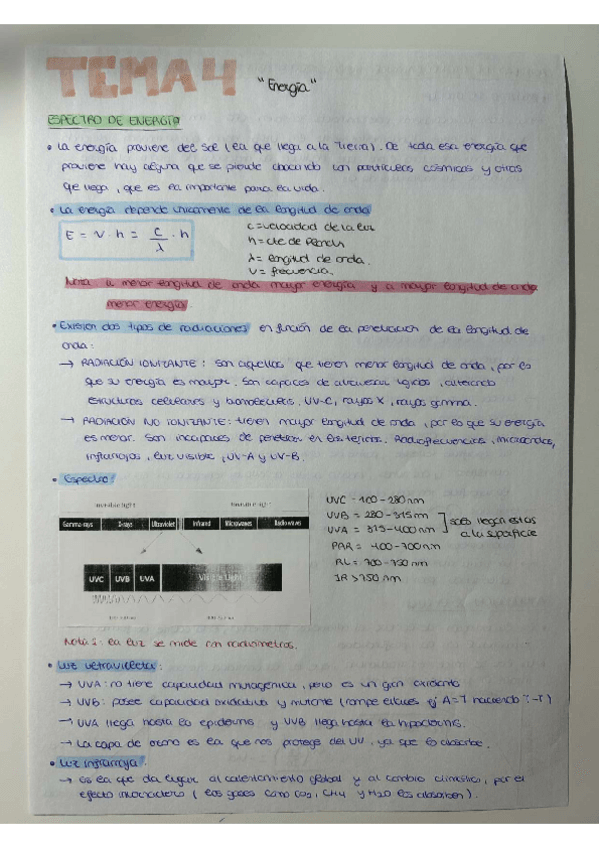 TEMA 4 "Energía"
ESPECTRO DE ENERGÍA
• La energía proviene del sol (la que llega a la Tierra). De toda esa energía que
proviene hay alguna que se pierde chocando con partículas cósmicas y otras
que llega, que es la importante para la vida.
• La energía depende únicamente de la longitud de onda
E = v · h = c/λ · h
c = velocidad de la luz
h = cte de Planck
λ = longitud de onda.
v = frecuencia.
Nota: a menor longitud de onda mayor energía y a mayor longitud de onda
menor energía.
• Existen dos tipos de radiaciones en función de la penetración de la longitud de
onda:
→ RADIACIÓN IONIZANTE: son aquellas que tienen menor longitud de onda, por lo
que su energía es mayor. Son capaces de atravesar tejidos, alterando
estructuras celulares y biomoléculas. UV-C, rayos X, rayos gamma.
→ RADIACIÓN NO IONIZANTE: tienen mayor longitud de onda, por lo que su energía
es menor. Son incapaces de penetrar en los tejidos. Radiofrecuencias, microondas,
infrarrojos, luz visible, UV-A y UV-B.
• Espectro:
Gamma-rays X-rays Ultraviolet Infrared Microwaves Radio waves
UVC UVB UVA Visible Light
UVC - 100 - 280 nm
UVB = 280 - 315 nm
UVA = 315 - 400 nm
solo llegan estas
a la superficie
PAR = 400 - 700 nm
RL = 700 - 750 nm
IR > 750 nm
Nota 1: la luz se mide con radiómetros.
• Luz ultravioleta:
→ UVA: no tiene capacidad mutagénica, pero es un gran oxidante
→ UVB: posee capacidad oxidativa y mutante (rompe enlaces ej A=T haciendo T-T)
→ UVA llega hasta la epidermis y UVB llega hasta la hipodermis.
→ La capa de ozono es la que nos protege del UV, ya que lo absorbe.
• Luz infrarroja:
→ Es la que da lugar al calentamiento global y al cambio climático, por el
efecto invernadero (los gases como CO2, CH4 y H2O las absorben).